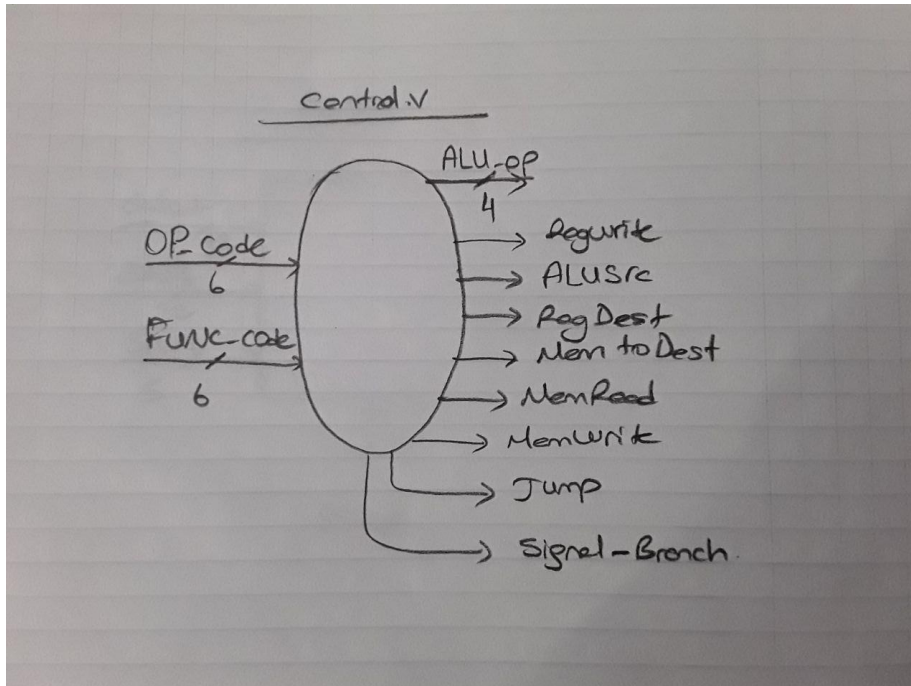 Control.V
ALU-op
4
OP_Code
6
Func-code
6
Regwrite
ALUSrc
RegDest
Mem toDest
MemRead
Memwrite
Jump
Signal-Branch.